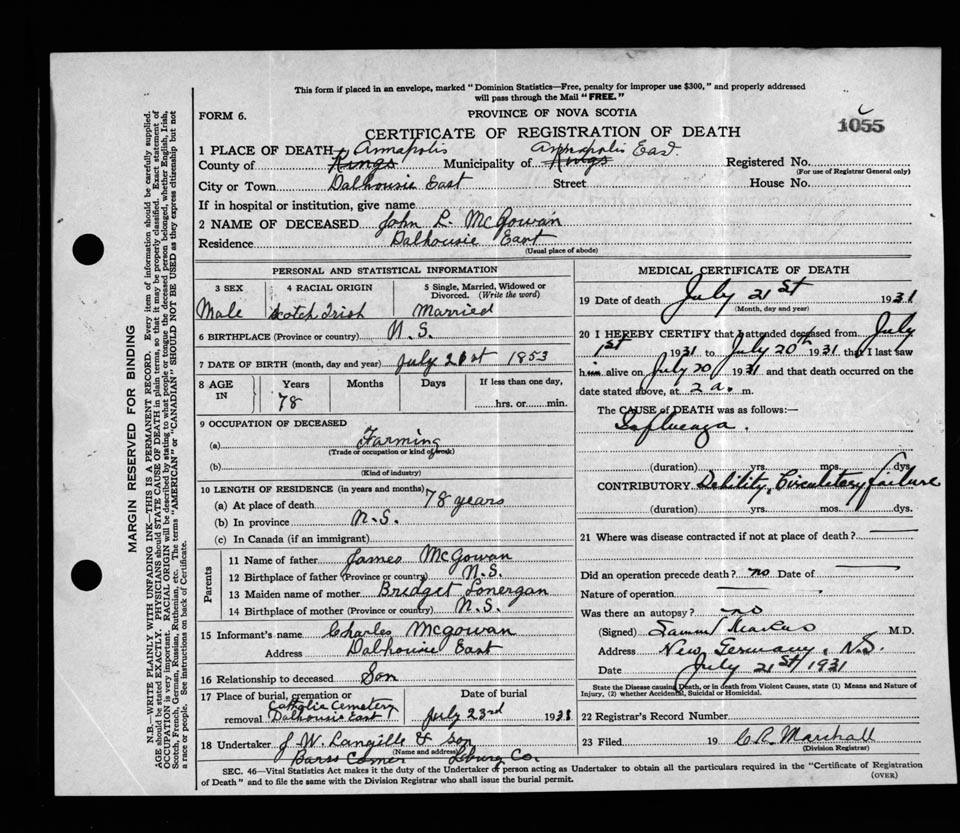 This form if placed in an envelope, marked "Dominion Statistics—Free, penalty for improper use $300," and properly addressed
will pass through the Mail "FREE."
FORM 6.
PROVINCE OF NOVA SCOTIA
1055
CERTIFICATE OF REGISTRATION OF DEATH
1 PLACE OF DEATH Annapolis Annapolis East.
County of Kings Municipality of Kings Registered No.
(For use of Registrar General only)
City or Town Dalhousie East Street House No.
If in hospital or institution, give name
2 NAME OF DECEASED John L. McGowan
Residence Dalhousie East
(Usual place of abode)
PERSONAL AND STATISTICAL INFORMATION
3 SEX 4 RACIAL ORIGIN 5 Single, Married, Widowed or
Divorced. (Write the word)
Male Scotch Irish Married
6 BIRTHPLACE (Province or country) N.S.
7 DATE OF BIRTH (month, day and year) July 21st 1853
8 AGE IN Years Months Days If less than one day,
78 hrs. or min.
9 OCCUPATION OF DECEASED
(a) Farming
(Trade or occupation or kind of work)
(b)
(Kind of industry)
10 LENGTH OF RESIDENCE (in years and months)
(a) At place of death 78 years
(b) In province N.S.
(c) In Canada (if an immigrant)
Parents
11 Name of father James McGowan
12 Birthplace of father (Province or country) N.S.
13 Maiden name of mother Bridget Lonergan
14 Birthplace of mother (Province or country) N.S.
15 Informant's name Charles McGowan
Address Dalhousie East
16 Relationship to deceased Son
17 Place of burial, cremation or Date of burial
removal Catholic Cemetery
Dalhousie East July 23rd 1931
18 Undertaker J. W. Langille & Son
(Name and address)
Barss Corner Lburg Co.
MEDICAL CERTIFICATE OF DEATH
19 Date of death July 21st 1931
(Month, day and year)
20 I HEREBY CERTIFY that I attended deceased from July
1st 1931 to July 20th 1931 that I last saw
him alive on July 20 1931 and that death occurred on the
date stated above, at 2 a. m.
The CAUSE of DEATH was as follows:—
Influenza.
(duration) yrs. mos. dys.
CONTRIBUTORY Debility, Circulatory failure
(duration) yrs. mos. dys.
21 Where was disease contracted if not at place of death?
Did an operation precede death? no Date of
Nature of operation
Was there an autopsy? no
(Signed) Samuel Marcus M.D.
Address New Germany, N.S.
Date July 21st 1931
State the Disease causing Death, or in death from Violent Causes, state (1) Means and Nature of
Injury, (2) whether Accidental, Suicidal or Homicidal.
22 Registrar's Record Number
23 Filed 19 C. R. Marshall
(Division Registrar)
SEC. 46—Vital Statistics Act makes it the duty of the Undertaker or person acting as Undertaker to obtain all the particulars required in the "Certificate of Registration
of Death" and to file the same with the Division Registrar who shall issue the burial permit.
(OVER)
MARGIN RESERVED FOR BINDING
N.B.—WRITE PLAINLY WITH UNFADING INK—THIS IS A PERMANENT RECORD. Every item of information should be carefully supplied.
AGE should be stated EXACTLY. PHYSICIANS should STATE CAUSE OF DEATH in plain terms, so that it may be properly classified. Exact statement of
OCCUPATION is very important. RACIAL ORIGIN will be described by stating to what people or tongue the deceased person belonged, whether English, Irish,
Scotch, French, German, Russian, Ruthenian, etc. The terms "AMERICAN" or "CANADIAN" SHOULD NOT BE USED as they express citizenship but not
a race or people. See instructions on back of Certificate.